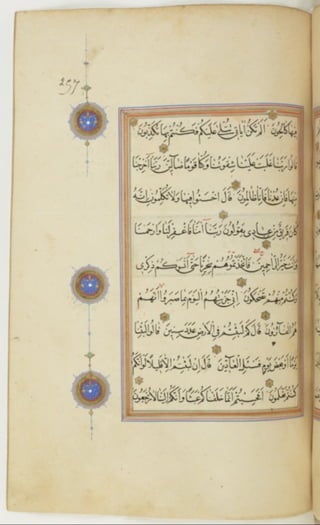 297
فيها كالحون الم تكن اياتي تتلى عليكم فكنتم بها تكذبون
قالوا ربنا غلبت علينا شقوتنا وكنا قوما ضالين ربنا اخرجنا
منها فان عدنا فانا ظالمون قال اخسئوا فيها ولا تكلمون انه
كان فريق من عبادي يقولون ربنا امنا فاغفر لنا وارحمنا
وانت خير الراحمين فاتخذتموهم سخريا حتى انسوكم ذكري
وكنتم منهم تضحكون اني جزيتهم اليوم بما صبروا انهم
هم الفائزون قال كم لبثتم في الارض عدد سنين قالوا لبثنا
يوما او بعض يوم فسئل العادين قال ان لبثتم الا قليلا لو انكم
كنتم تعلمون افحسبتم انما خلقناكم عبثا وانكم الينا لا ترجعون